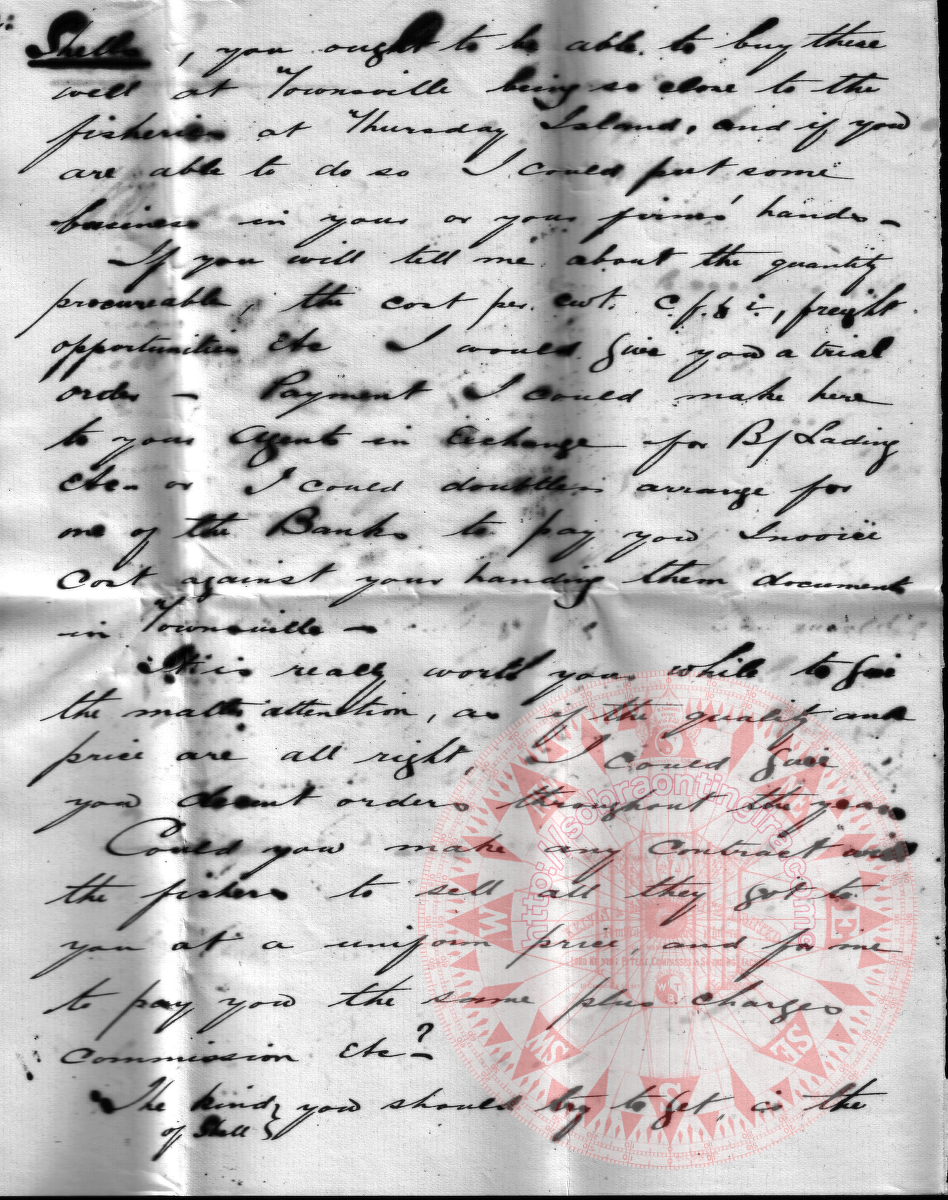 Shells, you ought to be able to buy these
well at Townsville being so close to the
fisheries at Thursday Island, and if you
are able to do so I could put some
business in your or your firms' hands –
If you will tell me about the quantity
procureable, the cost per cwt. c f. & i –, freight
opportunities etc I would give you a trial
order – Payment I could make here
to your Agents in Exchange for B/Lading
etc – or I could doubtless arrange for
one of the Banks to pay you Invoice
Cost against your handing them documents
in Townsville –
It is really worth your while to give
the matter attention, as if the quality and
price are all right, I could give
you decent orders throughout the year
Could you make any contract with
the fishers to sell all they got to
you at a uniform price, and for me
to pay you the same plus charges
commission etc? –
The kind you should try to get, is the
of Shell
http://sobraontingirra.com
W
E
SW
SE
S